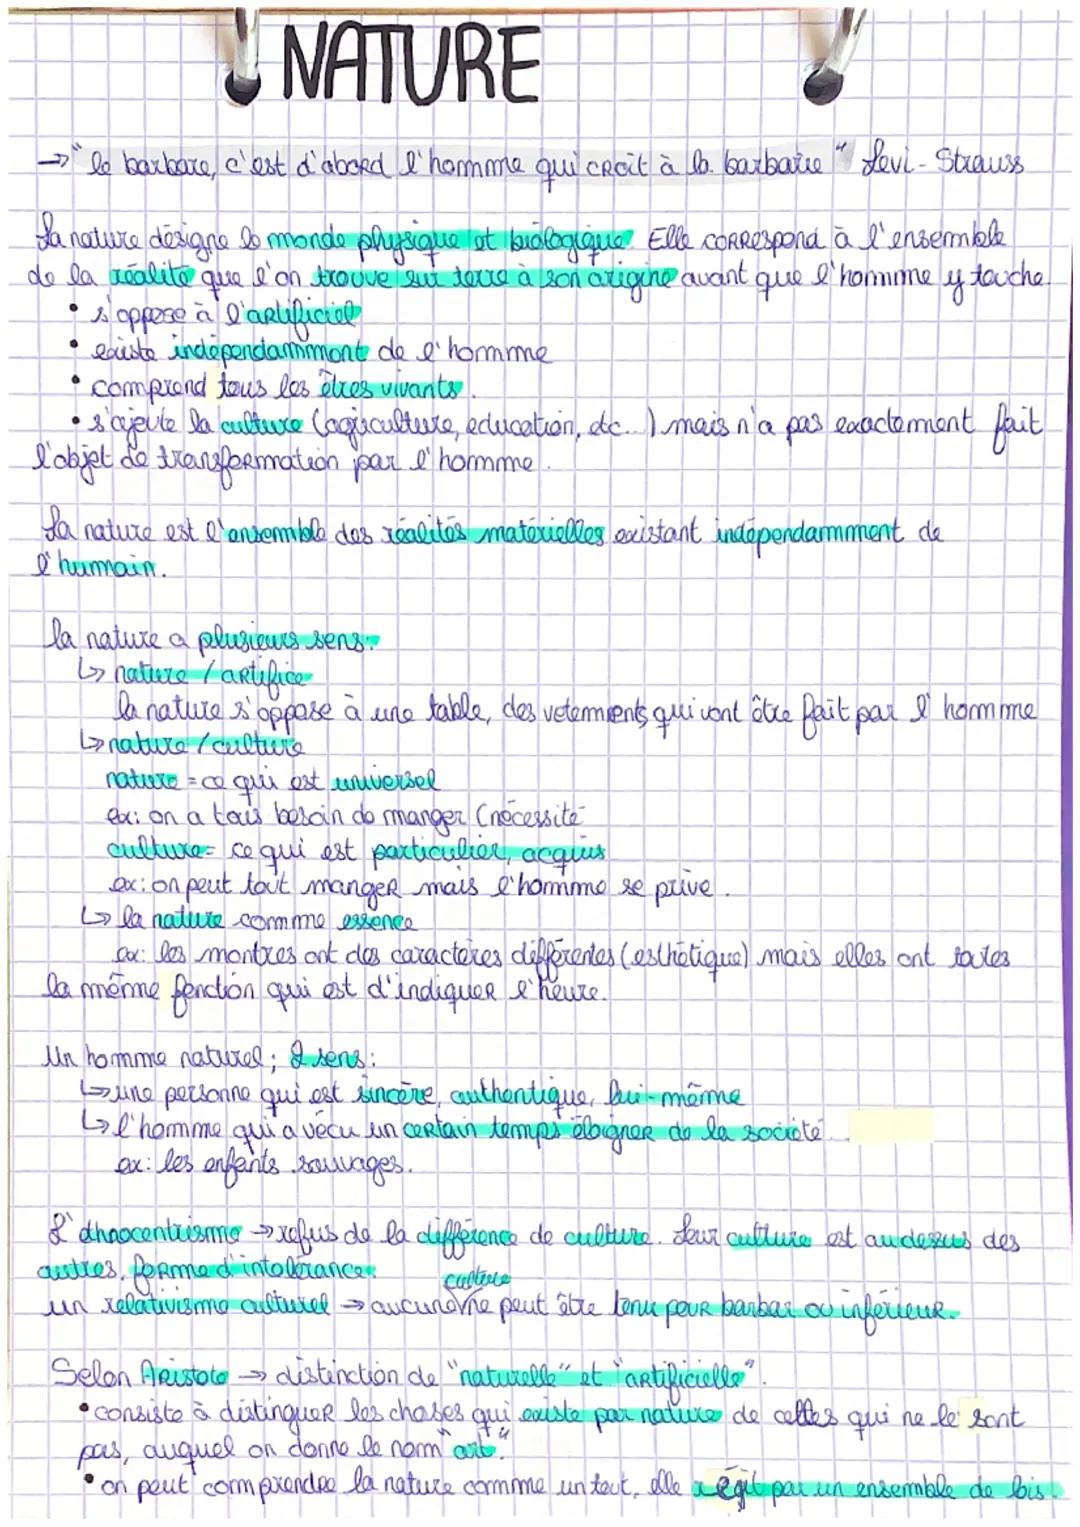 NATURE
→ "le barbare, c'est d'abord l'homme qui croit à la barbarie" Levi-Strauss
La nature désigne le monde physique et biologique. Elle correspond à l'ensemble
de la réalité que l'on trouve sur terre à son origine avant que l'homme y touche.
• s'oppose à l'artificiel
• existe indépendamment de l'homme
• comprend tous les êtres vivants.
• s'ajoute la culture (agriculture, education, etc...) mais n'a pas exactement fait
l'objet de transformation par l'homme.
La nature est l'ensemble des réalités matérielles existant indépendamment de
l'humain.
la nature a plusieurs sens:
↳ nature / artifice
la nature s'oppose à une table, des vetements qui vont être fait par l'homme
↳ nature / culture
nature = ce qui est universel
ex: on a tous besoin de manger (nécessité
culture = ce qui est particulier, acquis
ex: on peut tout manger mais l'homme se prive.
↳ la nature comme essence
ex: les montres ont des caractères différentes (esthétique) mais elles ont toutes
la même fonction qui est d'indiquer l'heure.
Un homme naturel; 2 sens:
↳ une personne qui est sincère, authentique, lui-même
↳ l'homme qui a vécu un certain temps éloigner de la société.
ex: les enfants sauvages.
L'ethnocentrisme → refus de la différence de culture. Leur culture est au dessus des
autres, forme d'intolérance.
culture
un relativisme culturel → aucune ne peut être tenu pour barbar ou inférieur.
Selon Aristote → distinction de "naturelle" et "artificielle".
• consiste à distinguer les choses qui existe par nature de celles qui ne le sont
pas, auquel on donne le nom "art".
• on peut comprendre la nature comme un tout, elle régit par un ensemble de lois.